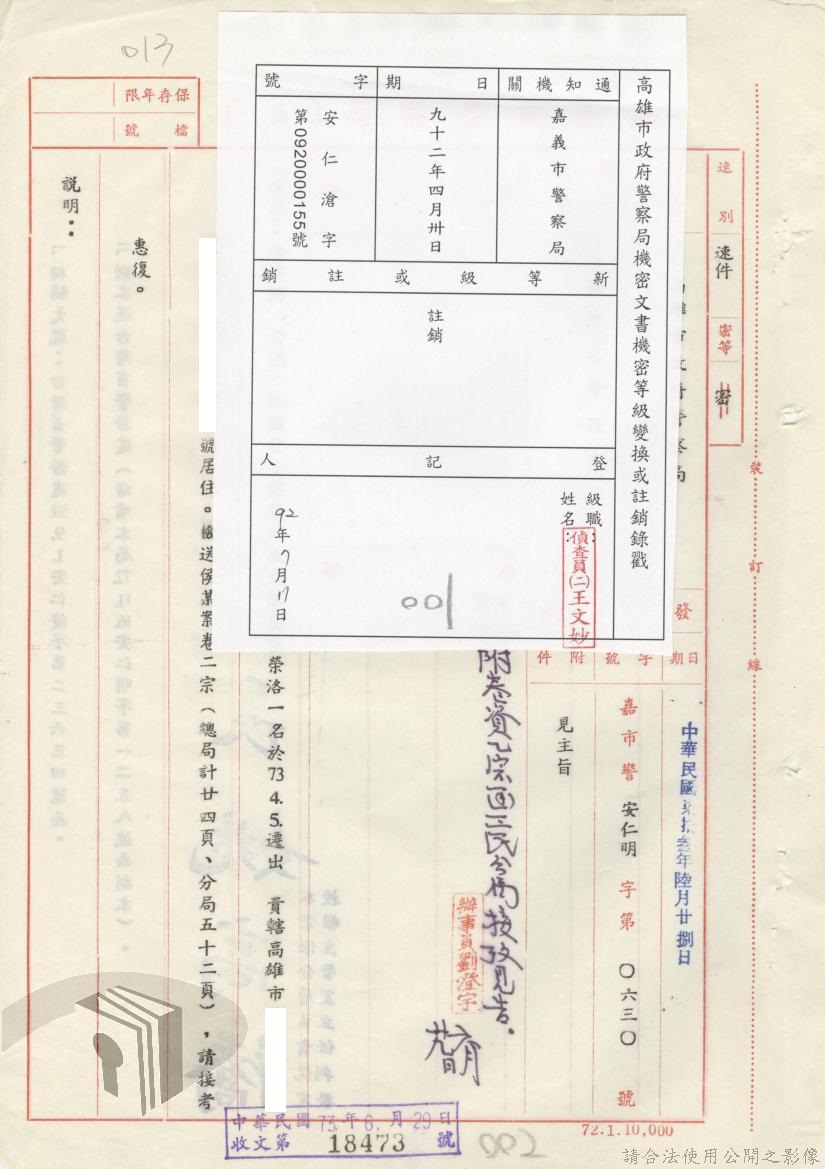 013
保存年限
檔號
高雄市政府警察局機密文書機密等級變換或註銷錄戳
通知機關
嘉義市警察局
日期
九十二年四月卅日
字號
安仁滄字
第0920000155號
新等級或註銷
註銷
登記人
級職：
姓名：
偵查員(二)王文妙
92年7月17日
001
速別
速件
密等
密
裝
訂
線
發
日期
字號
附件
中華民國柒拾叁年陸月廿捌日
嘉市警
安仁明
字第
〇六三〇
號
見主旨
附卷資乙宗函三民分局接攷見告。
辦事員劉澄宇
榮洛一名於73.4.5.遷出 貴轄高雄市
號居住。檢送侯某案卷二宗（總局計廿四頁、分局五十二頁），請接考
惠復。
說明：
中華民國73年6月29日
收文第18473號
002
72.1.10,000
請合法使用公開之影像